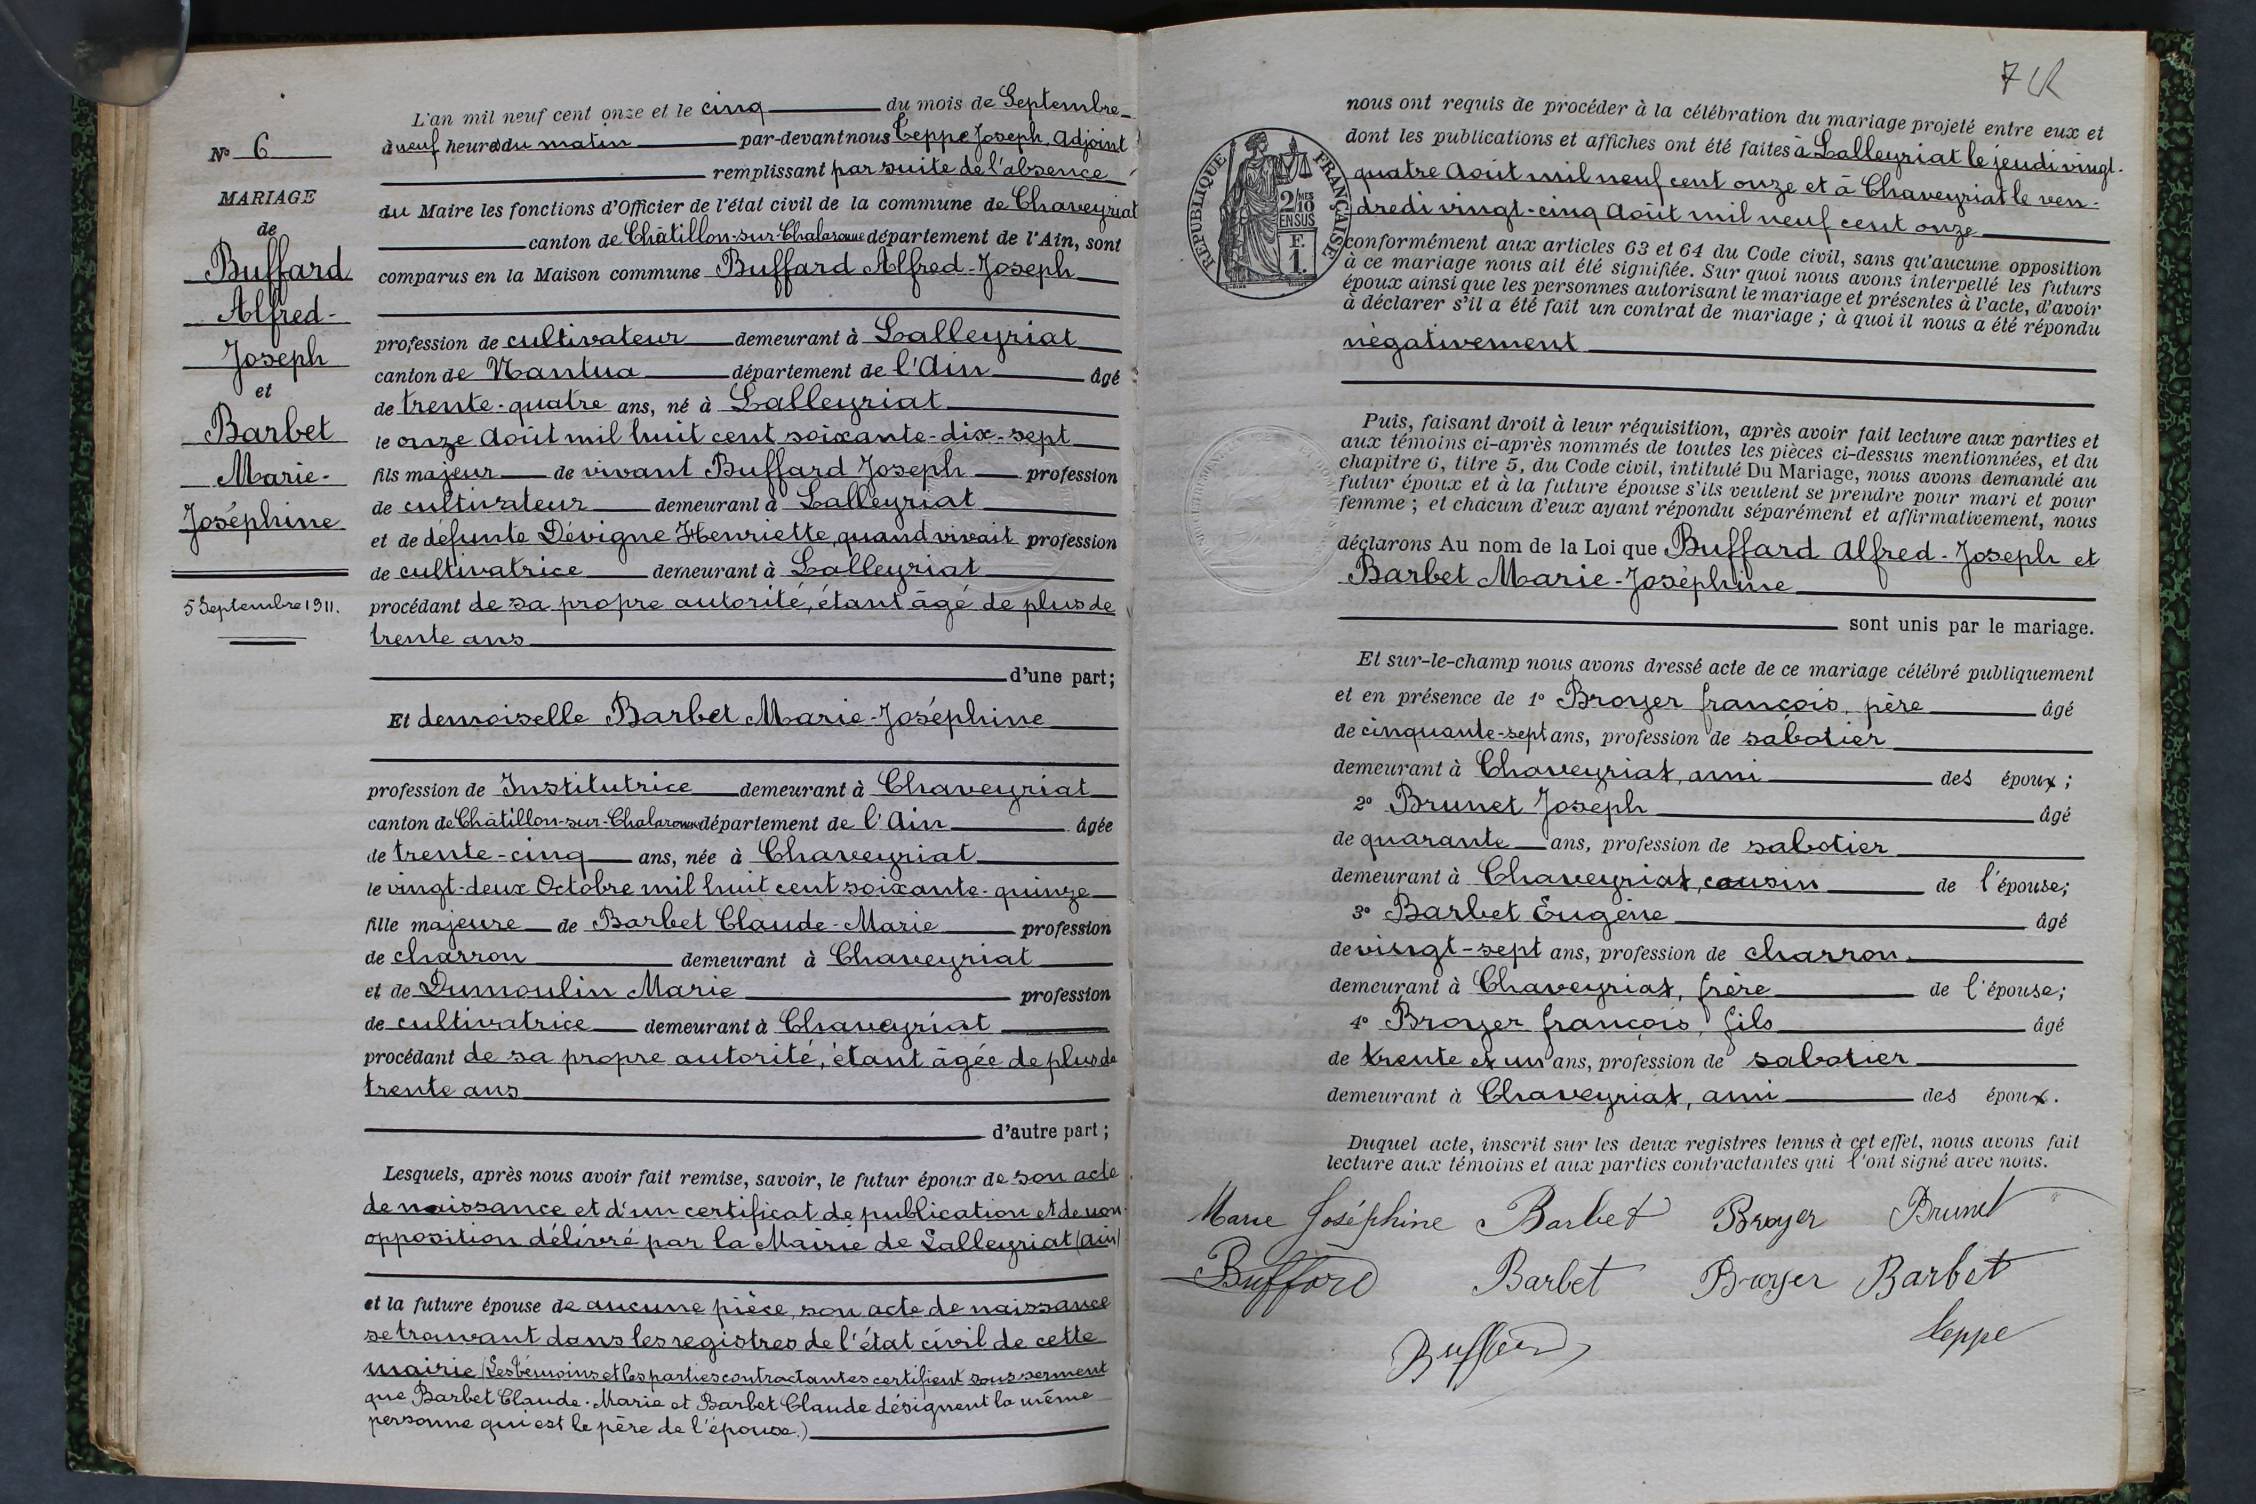 N° 6
MARIAGE
de
Buffard
Alfred-
Joseph
et
Barbet
Marie-
Joséphine
5 Septembre 1911.
L'an mil neuf cent onze et le cinq du mois de Septembre
à neuf heures du matin par-devant nous Teppe Joseph, Adjoint
remplissant par suite de l'absence
du Maire les fonctions d'Officier de l'état civil de la commune de Chaveyriat
canton de Châtillon-sur-Chalaronne département de l'Ain, sont
comparus en la Maison commune Buffard Alfred-Joseph
profession de cultivateur demeurant à Lalleyriat
canton de Nantua département de l'Ain âgé
de trente-quatre ans, né à Lalleyriat
le onze Août mil huit cent soixante-dix-sept
fils majeur de vivant Buffard Joseph profession
de cultivateur demeurant à Lalleyriat
et de défunte Dévigne Henriette, quand vivait profession
de cultivatrice demeurant à Lalleyriat
procédant de sa propre autorité, étant âgé de plus de
trente ans
d'une part;
Et demoiselle Barbet Marie-Joséphine
profession de Institutrice demeurant à Chaveyriat
canton de Châtillon-sur-Chalaronne département de l'Ain âgée
de trente-cinq ans, née à Chaveyriat
le vingt-deux Octobre mil huit cent soixante-quinze
fille majeure de Barbet Claude-Marie profession
de charron demeurant à Chaveyriat
et de Dumoulin Marie profession
de cultivatrice demeurant à Chaveyriat
procédant de sa propre autorité, étant âgée de plus de
trente ans
d'autre part;
Lesquels, après nous avoir fait remise, savoir, le futur époux de son acte
de naissance et d'un certificat de publication et de non-
opposition délivré par la Mairie de Lalleyriat (Ain)
et la future épouse de aucune pièce, son acte de naissance
se trouvant dans les registres de l'état civil de cette
mairie (Les témoins et les parties contractantes certifient sous serment
que Barbet Claude-Marie et Barbet Claude désignent la même
personne qui est le père de l'épouse.)
7
RÉPUBLIQUE FRANÇAISE
2/10MES
EN SUS
F.
1.
nous ont requis de procéder à la célébration du mariage projeté entre eux et
dont les publications et affiches ont été faites à Lalleyriat le jeudi vingt-
quatre Août mil neuf cent onze et à Chaveyriat le ven-
dredi vingt-cinq Août mil neuf cent onze
conformément aux articles 63 et 64 du Code civil, sans qu'aucune opposition
à ce mariage nous ait été signifiée. Sur quoi nous avons interpellé les futurs
époux ainsi que les personnes autorisant le mariage et présentes à l'acte, d'avoir
à déclarer s'il a été fait un contrat de mariage; à quoi il nous a été répondu
négativement
Puis, faisant droit à leur réquisition, après avoir fait lecture aux parties et
aux témoins ci-après nommés de toutes les pièces ci-dessus mentionnées, et du
chapitre 6, titre 5, du Code civil, intitulé Du Mariage, nous avons demandé au
futur époux et à la future épouse s'ils veulent se prendre pour mari et pour
femme; et chacun d'eux ayant répondu séparément et affirmativement, nous
déclarons Au nom de la Loi que Buffard Alfred-Joseph et
Barbet Marie-Joséphine
sont unis par le mariage.
Et sur-le-champ nous avons dressé acte de ce mariage célébré publiquement
et en présence de 1° Broyer françois, père âgé
de cinquante-sept ans, profession de sabotier
demeurant à Chaveyriat, ami des époux;
2° Brunet Joseph âgé
de quarante ans, profession de sabotier
demeurant à Chaveyriat, cousin de l'épouse;
3° Barbet Eugène âgé
de vingt-sept ans, profession de charron
demeurant à Chaveyriat, frère de l'épouse;
4° Broyer françois, fils âgé
de trente et un ans, profession de sabotier
demeurant à Chaveyriat, ami des époux.
Duquel acte, inscrit sur les deux registres tenus à cet effet, nous avons fait
lecture aux témoins et aux parties contractantes qui l'ont signé avec nous.
Marie Joséphine Barbet Broyer Brunet
Buffard Barbet Broyer Barbet
Buffard Teppe